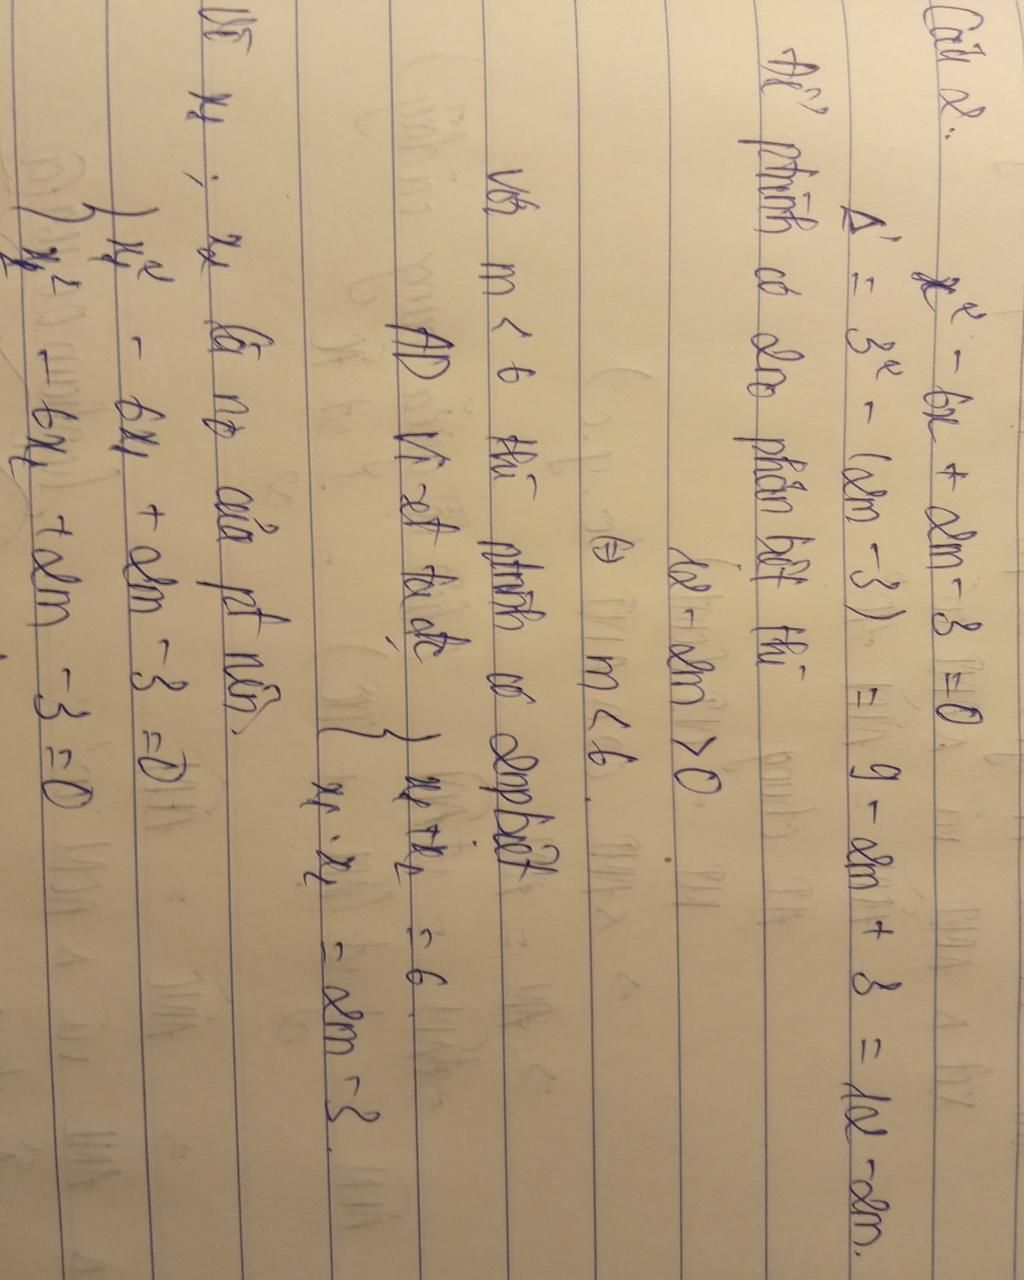 Câu 2:
x² - 6x + 2m - 3 = 0.
Δ' = 3² - (2m - 3) = 9 - 2m + 3 = 12 - 2m.
Để ptrình có 2no phân biệt thì
12 - 2m > 0
⇔ m < 6.
Với m < 6 thì ptrình có 2npbiệt
AD Vi-et ta đc { x₁ + x₂ = 6
{ x₁ . x₂ = 2m - 3.
Vì x₁ ; x₂ là no của pt nên
{ x₁² - 6x₁ + 2m - 3 = 0
{ x₂² - 6x₂ + 2m - 3 = 0